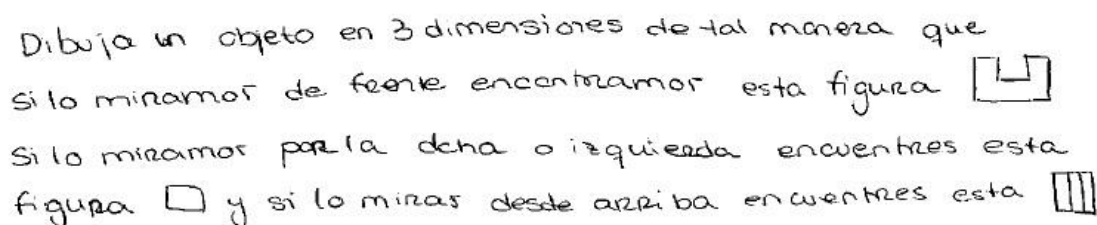 Dibuja un objeto en 3 dimensiones de tal manera que
si lo miramos de frente encontramos esta figura
Si lo miramos por la dcha o izquierda encuentres esta
figura y si lo miras desde arriba encuentres esta